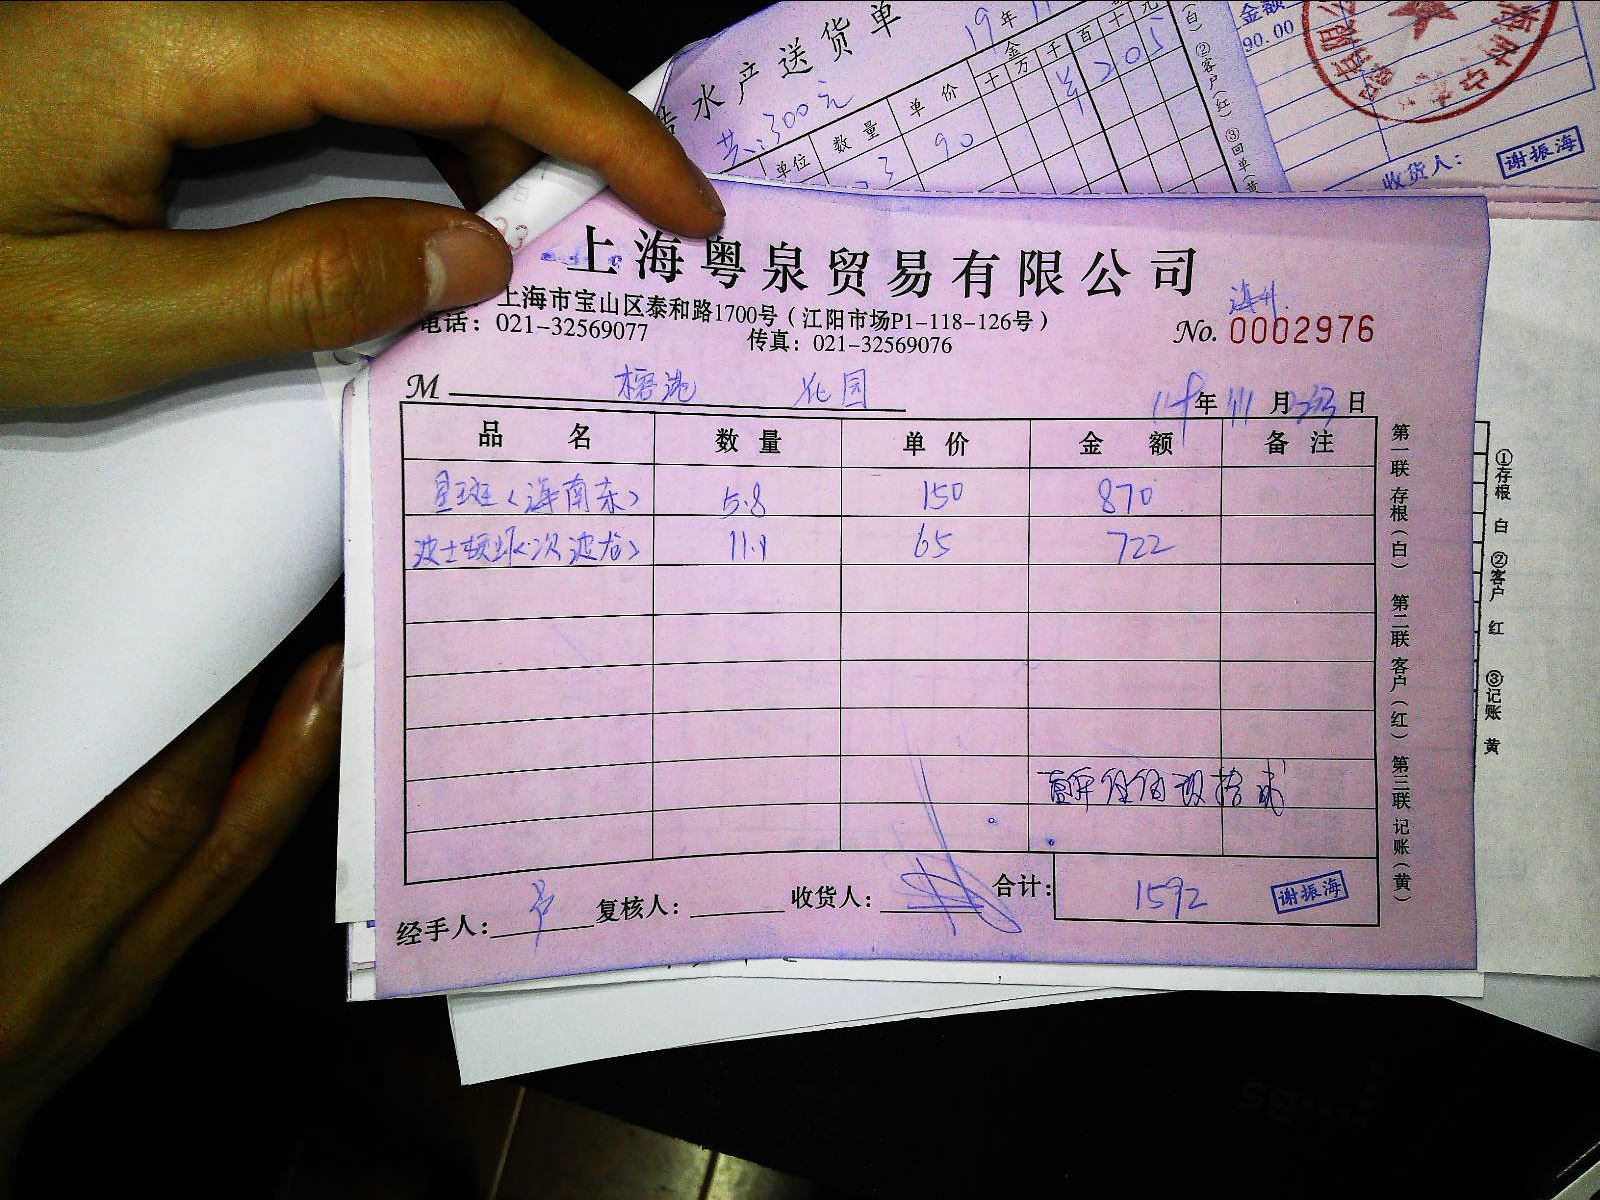 水产送货单
19年
共:300元
单位 数量 单价 金 十万千百十元
3 90 羊205
(白) ②客户(红) ③回单(黄
金额
90.00
收货人: 谢振海
上海粤泉贸易有限公司
上海市宝山区泰和路1700号(江阳市场P1-118-126号)
电话: 021-32569077 传真: 021-32569076
No. 0002976
M 榕港 花园
年 11 月 23 日
品 名 数 量 单 价 金 额 备 注
星斑(海南东) 5.8 150 870
波士顿虾(次波龙) 11.1 65 722
壹仟伍佰玖拾贰
经手人: 复核人: 收货人: 合计: 1592 谢振海
第一联 存根(白) 第二联 客户(红) 第三联 记账(黄)
①存根 白 ②客户 红 ③记账 黄